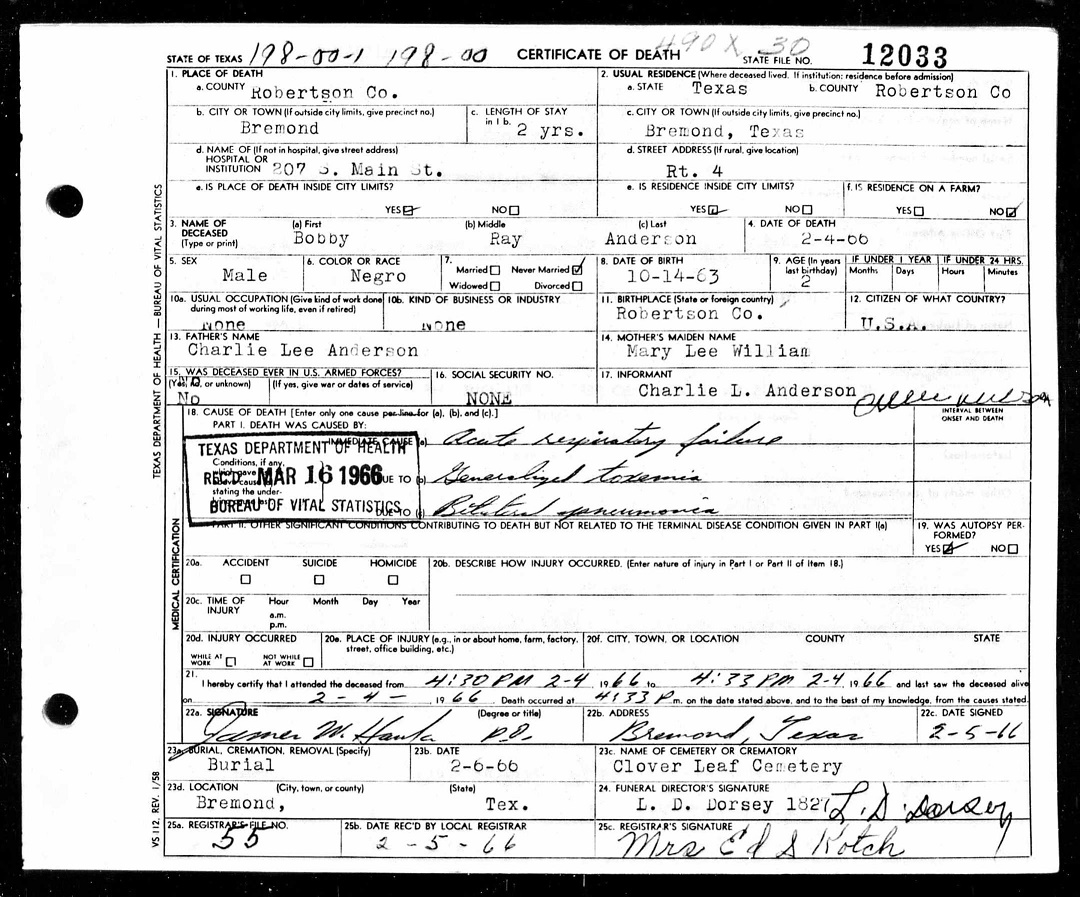 STATE OF TEXAS 198-00-1 198-00 CERTIFICATE OF DEATH 490X 30 STATE FILE NO. 12033
1. PLACE OF DEATH
a. COUNTY Robertson Co.
2. USUAL RESIDENCE (Where deceased lived. If institution: residence before admission)
a. STATE Texas b. COUNTY Robertson Co
b. CITY OR TOWN (If outside city limits, give precinct no.)
Bremond
c. LENGTH OF STAY in 1 b.
2 yrs.
c. CITY OR TOWN (If outside city limits, give precinct no.)
Bremond, Texas
d. NAME OF (If not in hospital, give street address)
HOSPITAL OR
INSTITUTION 207 S. Main St.
d. STREET ADDRESS (If rural, give location)
Rt. 4
e. IS PLACE OF DEATH INSIDE CITY LIMITS?
YES NO
e. IS RESIDENCE INSIDE CITY LIMITS?
YES NO
f. IS RESIDENCE ON A FARM?
YES NO
3. NAME OF DECEASED (Type or print)
(a) First Bobby
(b) Middle Ray
(c) Last Anderson
4. DATE OF DEATH
2-4-66
5. SEX
Male
6. COLOR OR RACE
Negro
7. Married Never Married
Widowed Divorced
8. DATE OF BIRTH
10-14-63
9. AGE (In years last birthday)
2
IF UNDER 1 YEAR
Months Days
IF UNDER 24 HRS.
Hours Minutes
10a. USUAL OCCUPATION (Give kind of work done during most of working life, even if retired)
None
10b. KIND OF BUSINESS OR INDUSTRY
None
11. BIRTHPLACE (State or foreign country)
Robertson Co.
12. CITIZEN OF WHAT COUNTRY?
U.S.A.
13. FATHER'S NAME
Charlie Lee Anderson
14. MOTHER'S MAIDEN NAME
Mary Lee William
15. WAS DECEASED EVER IN U.S. ARMED FORCES?
(Yes, no, or unknown) (If yes, give war or dates of service)
No
16. SOCIAL SECURITY NO.
NONE
17. INFORMANT
Charlie L. Anderson
18. CAUSE OF DEATH [Enter only one cause per line for (a), (b), and (c).]
INTERVAL BETWEEN ONSET AND DEATH
PART I. DEATH WAS CAUSED BY:
IMMEDIATE CAUSE (a) Acute respiratory failure
TEXAS DEPARTMENT OF HEALTH
REC'D MAR 16 1966
BUREAU OF VITAL STATISTICS
Conditions, if any,
stating the under-
DUE TO (b) Generalized toxemia
DUE TO (c) Bilateral pneumonia
PART II. OTHER SIGNIFICANT CONDITIONS CONTRIBUTING TO DEATH BUT NOT RELATED TO THE TERMINAL DISEASE CONDITION GIVEN IN PART I(a)
19. WAS AUTOPSY PERFORMED?
YES NO
20a. ACCIDENT SUICIDE HOMICIDE
20b. DESCRIBE HOW INJURY OCCURRED. (Enter nature of injury in Part I or Part II of Item 18.)
20c. TIME OF INJURY
Hour Month Day Year
a.m.
p.m.
20d. INJURY OCCURRED
WHILE AT WORK NOT WHILE AT WORK
20e. PLACE OF INJURY (e.g., in or about home, farm, factory, street, office building, etc.)
20f. CITY, TOWN, OR LOCATION COUNTY STATE
21. I hereby certify that I attended the deceased from 4:30 PM 2-4 1966 to 4:33 PM 2-4, 1966 and last saw the deceased alive
on 2-4- 1966 Death occurred at 4:33 P m. on the date stated above, and to the best of my knowledge, from the causes stated.
22a. SIGNATURE (Degree or title)
James M.
22b. ADDRESS
Bremond, Texas
22c. DATE SIGNED
2-5-66
23a. BURIAL, CREMATION, REMOVAL (Specify)
Burial
23b. DATE
2-6-66
23c. NAME OF CEMETERY OR CREMATORY
Clover Leaf Cemetery
23d. LOCATION (City, town, or county) (State)
Bremond, Tex.
24. FUNERAL DIRECTOR'S SIGNATURE
L. D. Dorsey 182 L. D. Dorsey
25a. REGISTRAR'S FILE NO.
55
25b. DATE REC'D BY LOCAL REGISTRAR
2-5-66
25c. REGISTRAR'S SIGNATURE
Mrs Ed S Kotch
TEXAS DEPARTMENT OF HEALTH — BUREAU OF VITAL STATISTICS
MEDICAL CERTIFICATION
VS 112, REV. 1/58